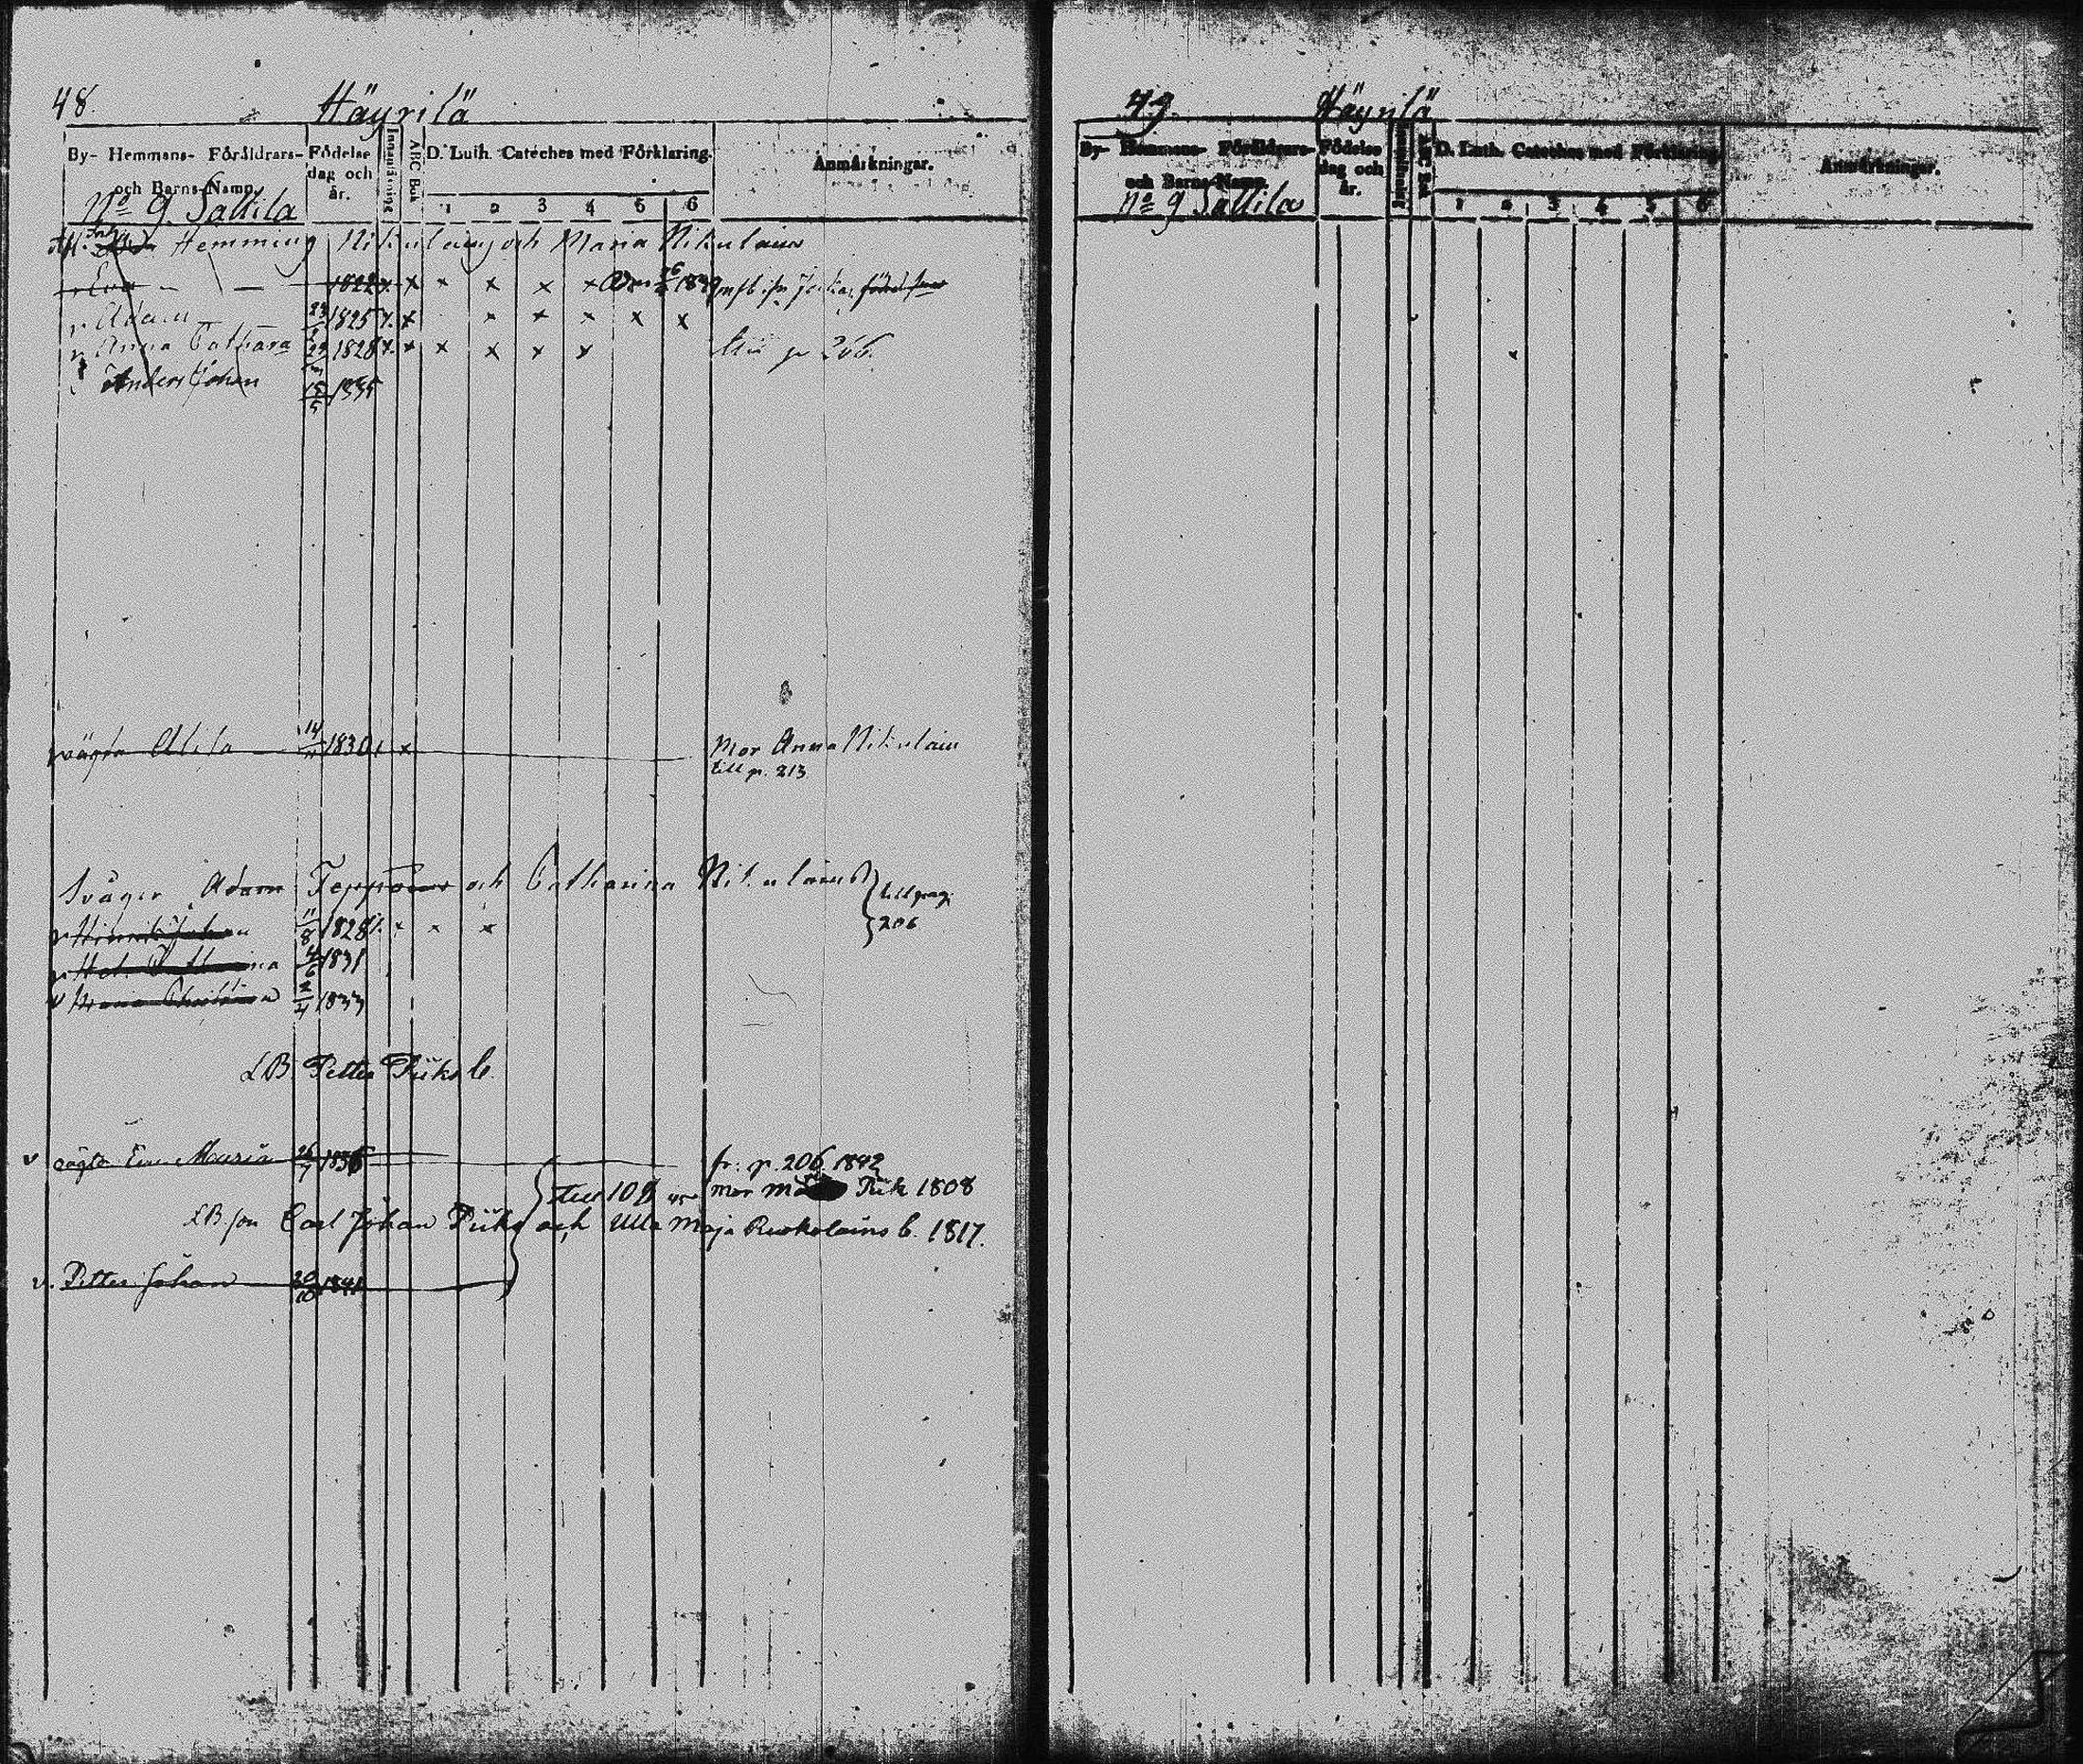 48. Häyrilä
By- Hemmans- Föräldrars- och Barns-Namn.
Födelse dag och år.
Innanläsning
ABC Bok
D. Luth. Cateches med Förklaring.
1 2 3 4 5 6
Anmärkningar.
No 9 Sattila
Hemming Nikulain och Maria Nikulain
v Eva — — 1822 x x x x x x
v Adam 1825 x x x x x x x
v Anna Cathara 1828 x x x x x x p 266.
Anders Johan 15/5 1835
Alita 14 1830 x Mor Anna Nikulain
till p. 213
Svåger Adam Teppoin och Catharina Nikulain
till pag. 206
v Hinrik Johan 11/8 1828 x x x
v Hel. Catharina 4/6 1831
v Maria Christina 2/4 1833
LB Petter Piiks b.
v oägta Eva Maria 26/7 1836 fr: p. 206 1842
108 mor Piik 1808
LB son Carl Johan Piiks och Ulla Maja Ruokolains b. 1817.
v. Petter Johan 20/10 1841
49. Häyrilä
By- Hemmans- Föräldrars- och Barns-Namn.
Födelse dag och år.
D. Luth. Cateches med Förklaring.
1 2 3 4 5 6
Anmärkningar.
No 9 Sattila